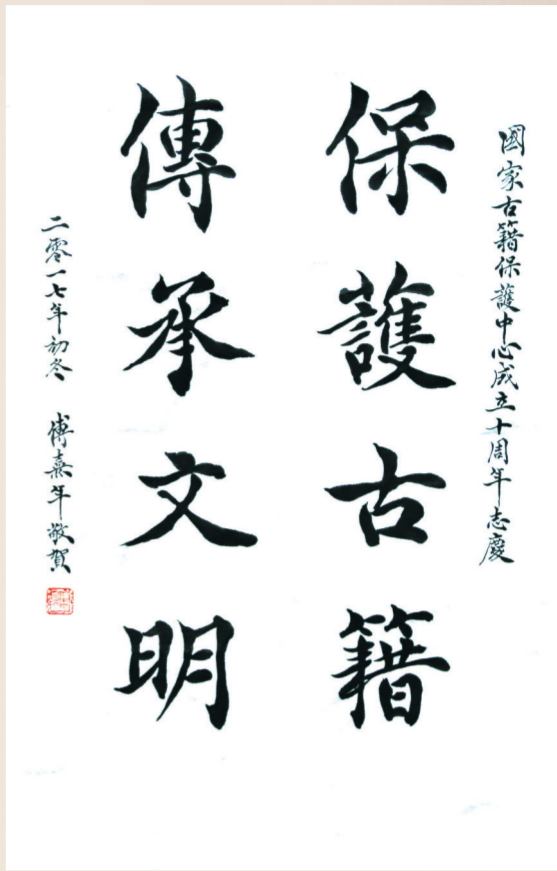 國家古籍保護中心成立十周年志慶
保護古籍
傳承文明
二零一七年初冬 傅熹年敬賀